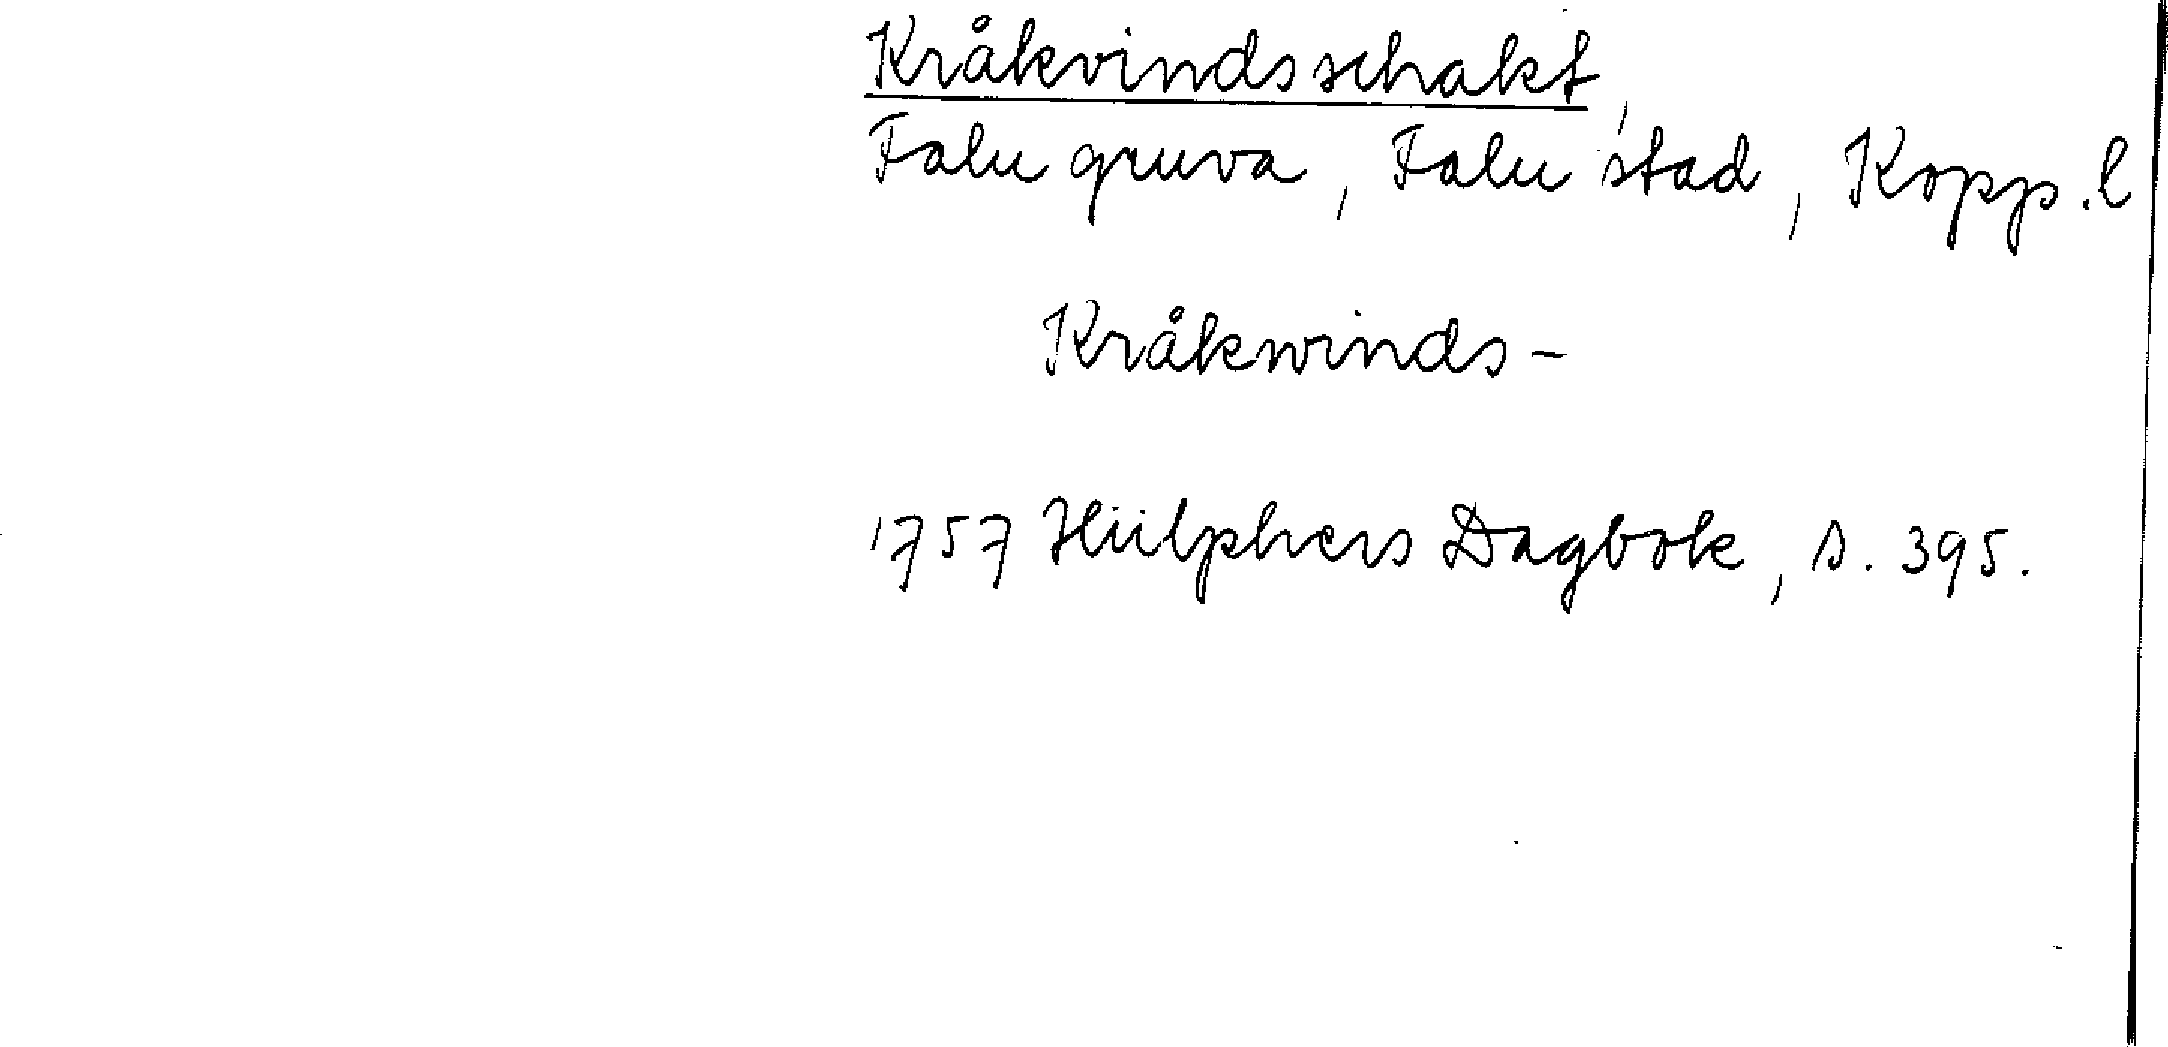 Kråkvindsschakt,
Falu gruva, Falu stad, Kopp.l
Kråkwinds-
1757 Hülphers Dagbok, s. 395.